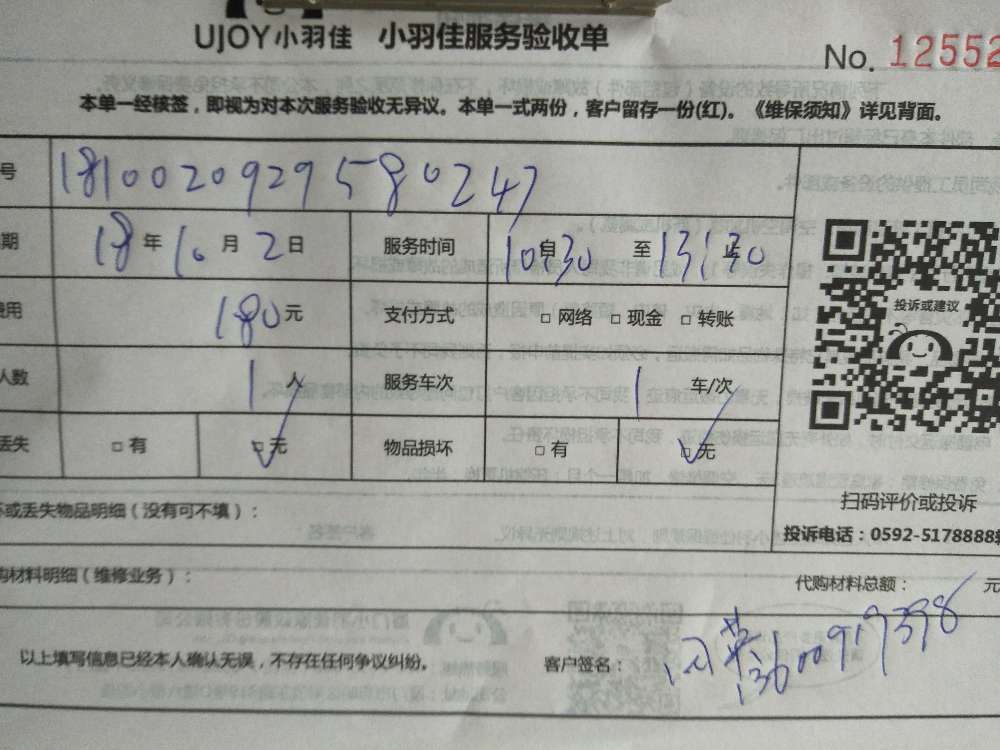 UJOY小羽佳 小羽佳服务验收单
No. 12552
本单一经核签，即视为对本次服务验收无异议。本单一式两份，客户留存一份(红)。《维保须知》详见背面。
号 1810020929580247
期 18年10月2日 服务时间 10自30至13止30
费用 180元 支付方式 □网络 □现金 □转账
投诉或建议
人数 1人 服务车次 1车/次
丢失 □有 □无 物品损坏 □有 □无
扫码评价或投诉
坏或丢失物品明细（没有可不填）：
投诉电话：0592-5178888转
购材料明细（维修业务）： 代购材料总额： 元
以上填写信息已经本人确认无误，不存在任何争议纠纷。 客户签名： 13600919398